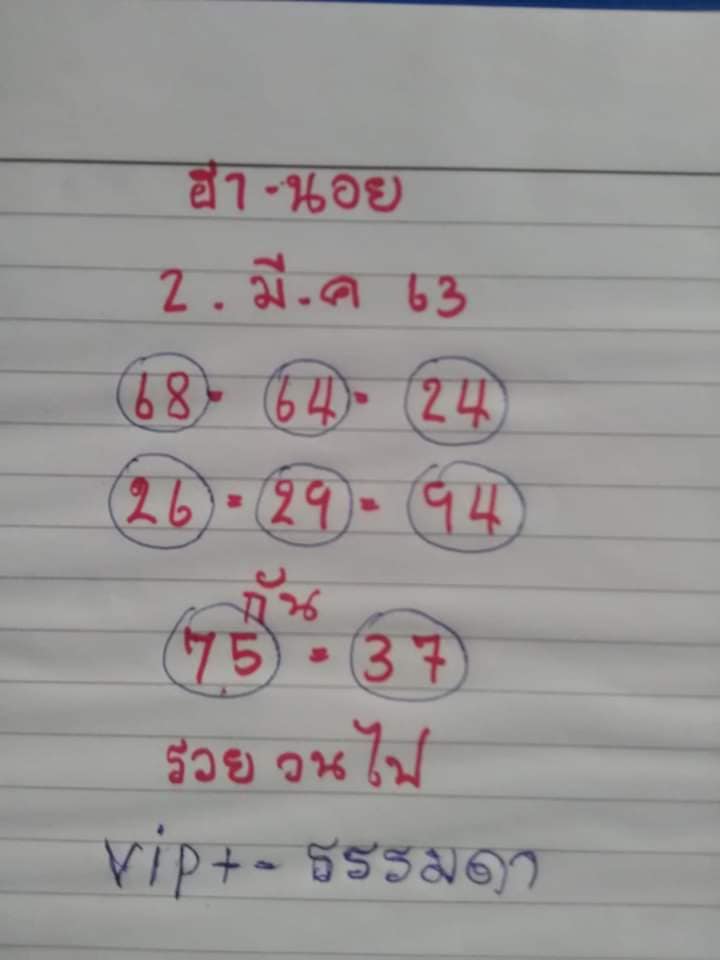 ฮา-นอย
2. มี.ค 63
68 - 64 - 24
26 - 29 - 94
กัน
75 - 37
รวย วนไป
vip + - ธรรมดา